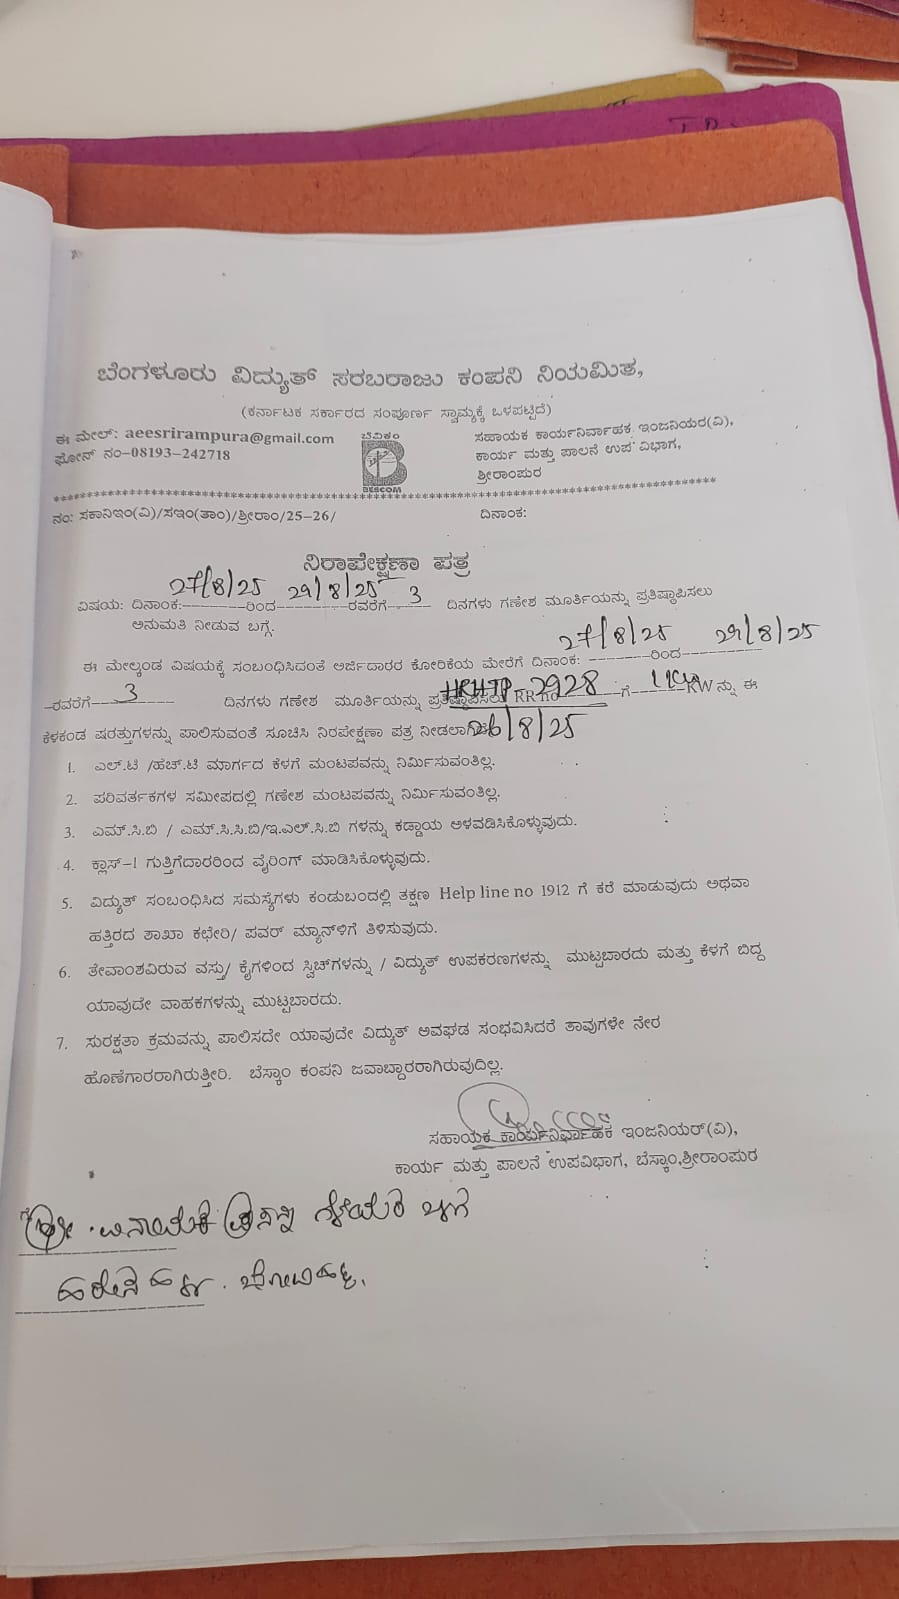 ಬೆಂಗಳೂರು ವಿದ್ಯುತ್ ಸರಬರಾಜು ಕಂಪನಿ ನಿಯಮಿತ,
(ಕರ್ನಾಟಕ ಸರ್ಕಾರದ ಸಂಪೂರ್ಣ ಸ್ವಾಮ್ಯಕ್ಕೆ ಒಳಪಟ್ಟಿದೆ)
ಈ ಮೇಲ್: aeesrirampura@gmail.com
ಫೋನ್ ನಂ-08193-242718
ಬೆವಿಕಂ
BESCOM
ಸಹಾಯಕ ಕಾರ್ಯನಿರ್ವಾಹಕ ಇಂಜನಿಯರ(ವಿ),
ಕಾರ್ಯ ಮತ್ತು ಪಾಲನೆ ಉಪ ವಿಭಾಗ,
ಶ್ರೀರಾಂಪುರ
ನಂ: ಸಕಾನಿಇಂ(ವಿ)/ಸಇಂ(ತಾಂ)/ಶ್ರೀರಾಂ/25-26/ ದಿನಾಂಕ:
ನಿರಾಪೇಕ್ಷಣಾ ಪತ್ರ
ವಿಷಯ: ದಿನಾಂಕ: 27/8/25 ರಿಂದ 29/8/25 ರವರೆಗೆ 3 ದಿನಗಳು ಗಣೇಶ ಮೂರ್ತಿಯನ್ನು ಪ್ರತಿಷ್ಠಾಪಿಸಲು
ಅನುಮತಿ ನೀಡುವ ಬಗ್ಗೆ.
ಈ ಮೇಲ್ಕಂಡ ವಿಷಯಕ್ಕೆ ಸಂಬಂಧಿಸಿದಂತೆ ಅರ್ಜಿದಾರರ ಕೋರಿಕೆಯ ಮೇರೆಗೆ ದಿನಾಂಕ: 27/8/25 ರಿಂದ 29/8/25
ರವರೆಗೆ 3 ದಿನಗಳು ಗಣೇಶ ಮೂರ್ತಿಯನ್ನು ಪ್ರತಿಷ್ಠಾಪಿಸಲು RR no 2928 ಗೆ KW ನ್ನು ಈ
ಕೆಳಕಂಡ ಷರತ್ತುಗಳನ್ನು ಪಾಲಿಸುವಂತೆ ಸೂಚಿಸಿ ನಿರಪೇಕ್ಷಣಾ ಪತ್ರ ನೀಡಲಾಗಿದೆ. 26/8/25
1. ಎಲ್.ಟಿ /ಹೆಚ್.ಟಿ ಮಾರ್ಗದ ಕೆಳಗೆ ಮಂಟಪವನ್ನು ನಿರ್ಮಿಸುವಂತಿಲ್ಲ.
2. ಪರಿವರ್ತಕಗಳ ಸಮೀಪದಲ್ಲಿ ಗಣೇಶ ಮಂಟಪವನ್ನು ನಿರ್ಮಿಸುವಂತಿಲ್ಲ.
3. ಎಮ್.ಸಿ.ಬಿ / ಎಮ್.ಸಿ.ಸಿ.ಬಿ/ಇ.ಎಲ್.ಸಿ.ಬಿ ಗಳನ್ನು ಕಡ್ಡಾಯ ಅಳವಡಿಸಿಕೊಳ್ಳುವುದು.
4. ಕ್ಲಾಸ್-1 ಗುತ್ತಿಗೆದಾರರಿಂದ ವೈರಿಂಗ್ ಮಾಡಿಸಿಕೊಳ್ಳುವುದು.
5. ವಿದ್ಯುತ್ ಸಂಬಂಧಿಸಿದ ಸಮಸ್ಯೆಗಳು ಕಂಡುಬಂದಲ್ಲಿ ತಕ್ಷಣ Help line no 1912 ಗೆ ಕರೆ ಮಾಡುವುದು ಅಥವಾ
ಹತ್ತಿರದ ಶಾಖಾ ಕಛೇರಿ/ ಪವರ್ ಮ್ಯಾನ್‌ಳಿಗೆ ತಿಳಿಸುವುದು.
6. ತೇವಾಂಶವಿರುವ ವಸ್ತು/ ಕೈಗಳಿಂದ ಸ್ವಿಚ್‌ಗಳನ್ನು / ವಿದ್ಯುತ್ ಉಪಕರಣಗಳನ್ನು ಮುಟ್ಟಬಾರದು ಮತ್ತು ಕೆಳಗೆ ಬಿದ್ದ
ಯಾವುದೇ ವಾಹಕಗಳನ್ನು ಮುಟ್ಟಬಾರದು.
7. ಸುರಕ್ಷತಾ ಕ್ರಮವನ್ನು ಪಾಲಿಸದೇ ಯಾವುದೇ ವಿದ್ಯುತ್ ಅವಘಡ ಸಂಭವಿಸಿದರೆ ತಾವುಗಳೇ ನೇರ
ಹೊಣೆಗಾರರಾಗಿರುತ್ತೀರಿ. ಬೆಸ್ಕಾಂ ಕಂಪನಿ ಜವಾಬ್ದಾರರಾಗಿರುವುದಿಲ್ಲ.
ಸಹಾಯಕ ಕಾರ್ಯನಿರ್ವಾಹಕ ಇಂಜನಿಯರ್(ವಿ),
ಕಾರ್ಯ ಮತ್ತು ಪಾಲನೆ ಉಪವಿಭಾಗ, ಬೆಸ್ಕಾಂ,ಶ್ರೀರಾಂಪುರ
ಶ್ರೀ ವಿನಾಯಕ ಪ್ರಸನ್ನ ಗೆಳೆಯರ ಬಳಗ